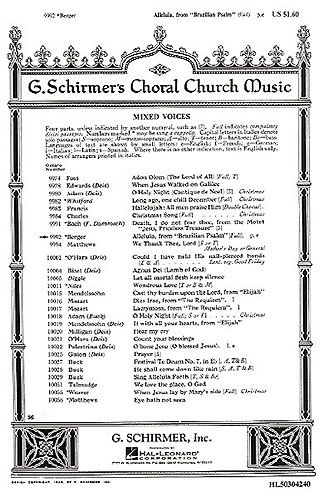 9992 *Berger Alleluia, from "Brazilian Psalm" (Full) p.e US $1.60
G. Schirmer's Choral Church Music
MIXED VOICES
Four parts, unless indicated by another numeral, such as [3]. Full indicates compulsory
divisi passages. Numbers marked * may be sung a cappella. Capital letters in italics denote
solo passages:
Languages of text are shown by small letters: e=English; f=French; g=German;
i=Italian; l=Latin; s=Spanish. Where there is no other indication, text is English only.
Names of arrangers printed in italics.
Octavo
Number
9974 Foss Adon Olom (The Lord of All) [Full, T]
9978 Edwards (Deis) When Jesus Walked on Galilee
9980 Adam (Deis) O Holy Night (Cantique de Noel) [3] Christmas
9982 *Whitford Long ago, one chill December [Full] Christmas
9983 Francis Hallelujah! All men praise Him (Double Chorus)
9984 Charles Christmas Song [Full] Christmas
9991 *Bach (F. Damrosch) Death, I do not fear thee, from the Motet
"Jesu, Priceless Treasure" [5]
9992 *Berger Alleluia, from "Brazilian Psalm" [Full] p.e
9994 Matthews We Thank Thee, Lord [S or T]
Mother's Day or General
10001 *O'Hara (Deis) Could I have held His nail-pierced hands
Lent, esp. Good Friday
10004 Bizet (Deis) Agnus Dei (Lamb of God)
10005 Diggle Let all mortal flesh keep silence
10011 *Niles Wondrous Love [T or B & M]
10015 Mendelssohn Cast thy burden upon the Lord, from "Elijah"
10016 Mozart Dies Irae, from "The Requiem" l
10017 Mozart Lacrymosa, from "The Requiem" l
10018 Adam O Holy Night [Full; S or T] Christmas
10019 Mendelssohn (Deis) If with all your hearts, from "Elijah"
10020 Milligan (Deis) Hear my cry
10021 O'Hara (Deis) Count your blessings
10022 Palestrina (Deis) O bone Jesu (O blessed Jesus). l. e
10025 Guion (Deis) Prayer
10027 Buck Festival Te Deum No. 7, in E♭
10028 Buck He shall come down like rain
10029 Buck Sing Alleluia Forth
10031 Talmadge We love the place, O God
10035 *Warner When Jesus lay by Mary's side [Full] Christmas
10036 *Matthews Eye hath not seen
56
G. SCHIRMER, Inc.
Distributed by
HAL•LEONARD
HL50304240